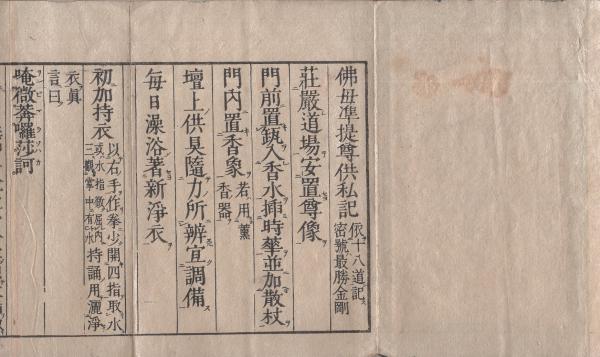 佛母准提尊供私記 依十八道記 密號最勝金剛
莊嚴道場安置尊像
門前置𤬪入香水挿時華並加散杖
門内置香象 若用薰香器
壇上供具隨力所辨宜調備
每日澡浴著新淨衣
初加持衣 以右手作拳少開四指取水 或水指微屈内三觀掌中有水 持誦用灑淨
衣眞
言曰
唵微莾囉莎訶